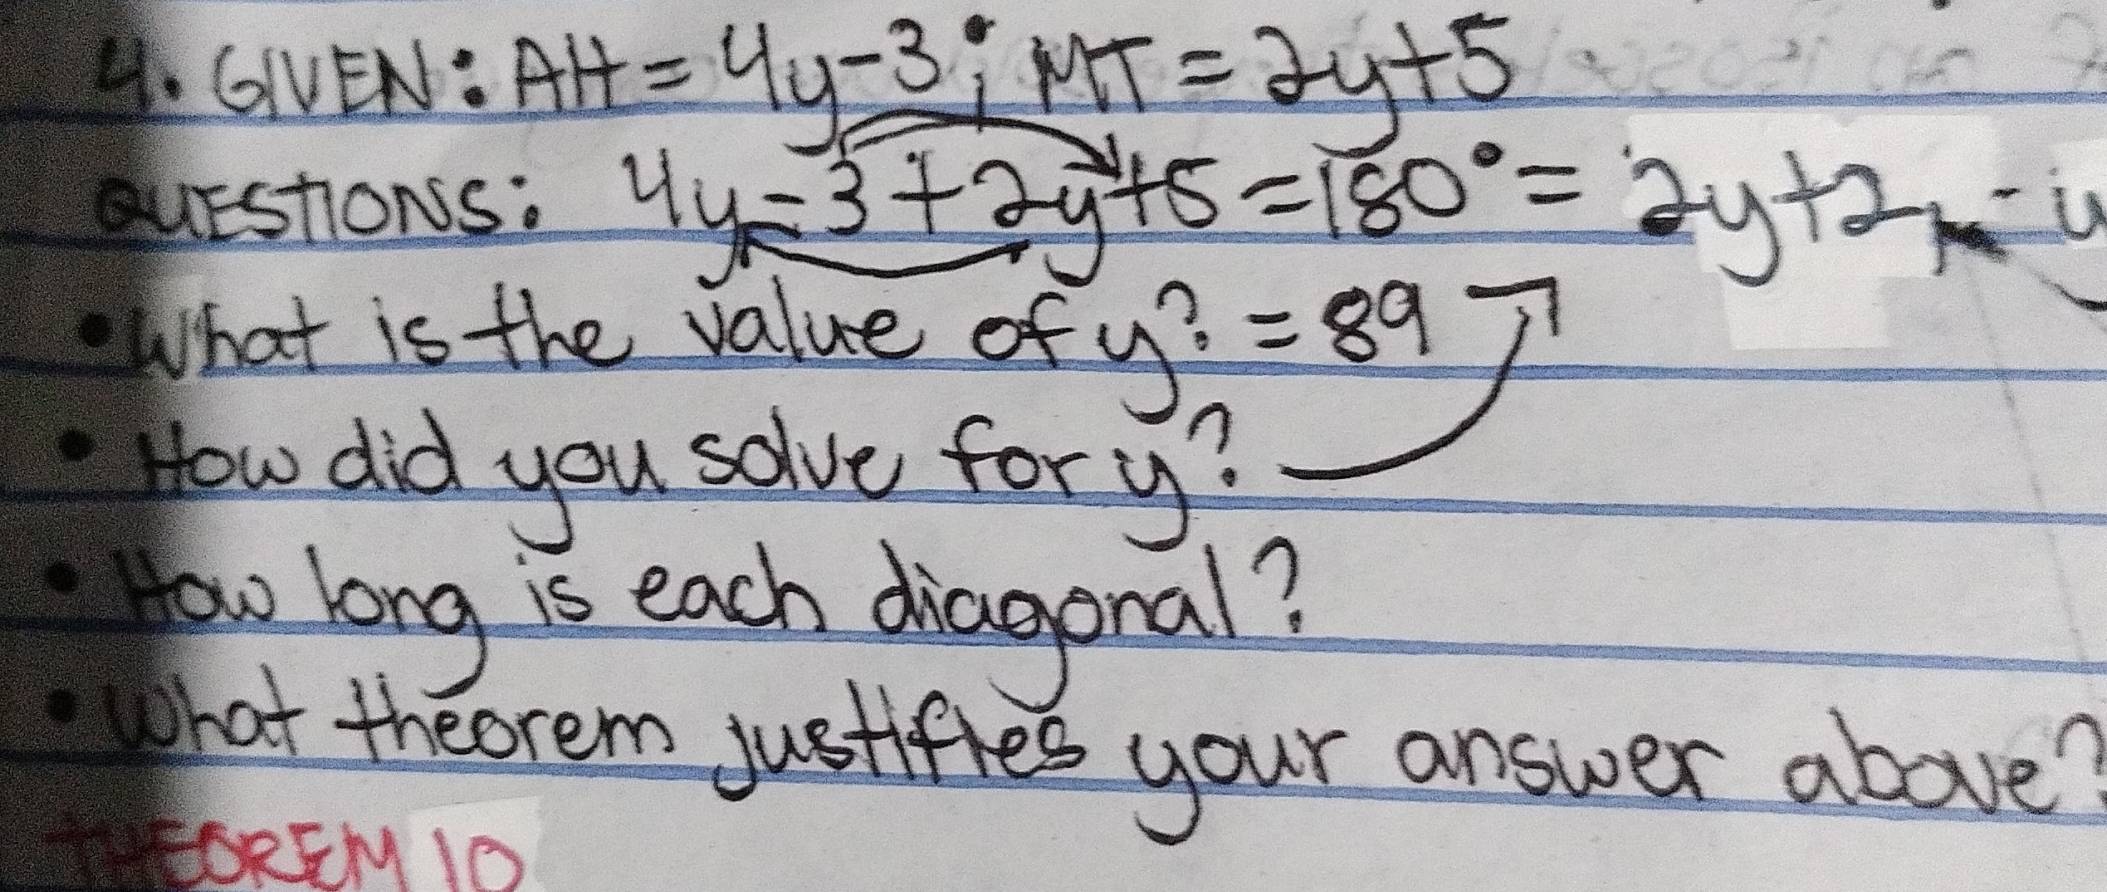 4. GIVEN: AH = 4y-3; MT = 2y+5
QUESTIONS: 4y-3+2y+5=180°= 2y+2
• What is the value of y? = 89
• How did you solve for y?
• How long is each diagonal?
• What theorem justifies your answer above?
THEOREM 10